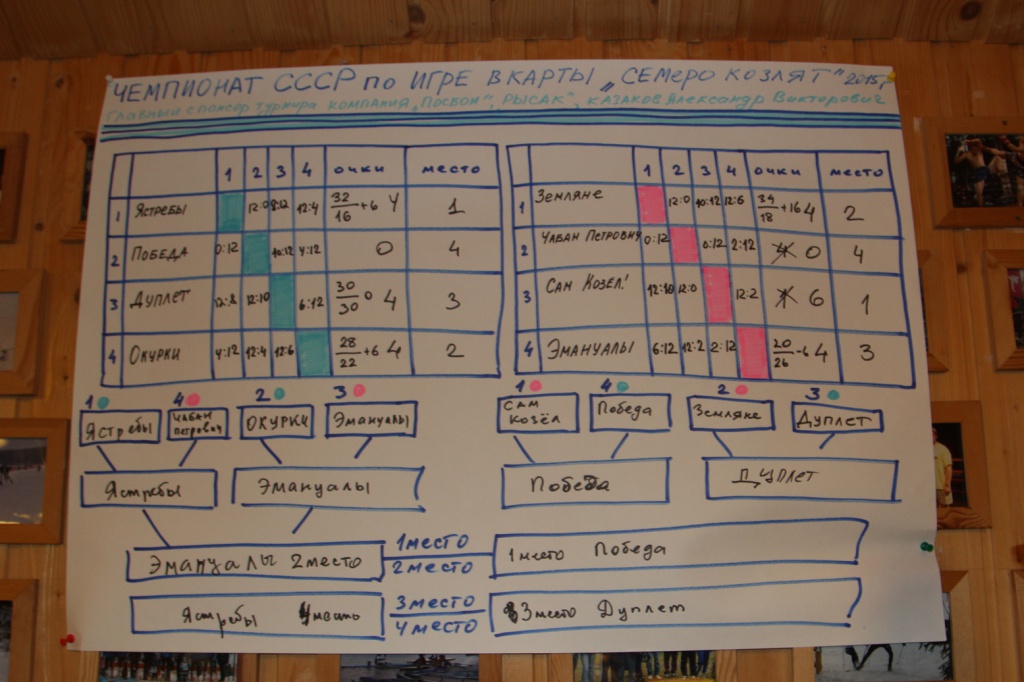 ЧЕМПИОНАТ СССР ПО ИГРЕ В КАРТЫ „СЕМЕРО КОЗЛЯТ" 2015г
Главный спонсор турнира компания „Посбон", „Рысак", Казаков Александр Викторович
1 2 3 4 очки место
1 Ястребы 12:0 8:12 12:4 32/16 +6 4 1
2 Победа 0:12 10:12 4:12 0 4
3 Дуплет 12:8 12:10 6:12 30/30 0 4 3
4 Окурки 4:12 12:4 12:6 28/22 +6 4 2
1 2 3 4 очки место
1 Земляне 12:0 10:12 12:6 34/18 +16 4 2
2 Чабан Петрович 0:12 0:12 2:12 0 4
3 Сам Козёл! 12:10 12:0 12:2 6 1
4 Эмануалы 6:12 12:2 2:12 20/26 -6 4 3
1 4 2 3
Ястребы Чабан Петрович Окурки Эмануалы
Ястребы Эмануалы
1 4 2 3
Сам Козёл Победа Земляне Дуплет
Победа Дуплет
Эмануалы 2 место
1 место
2 место
1 место Победа
Ястребы 4 место
3 место
4 место
3 место Дуплет